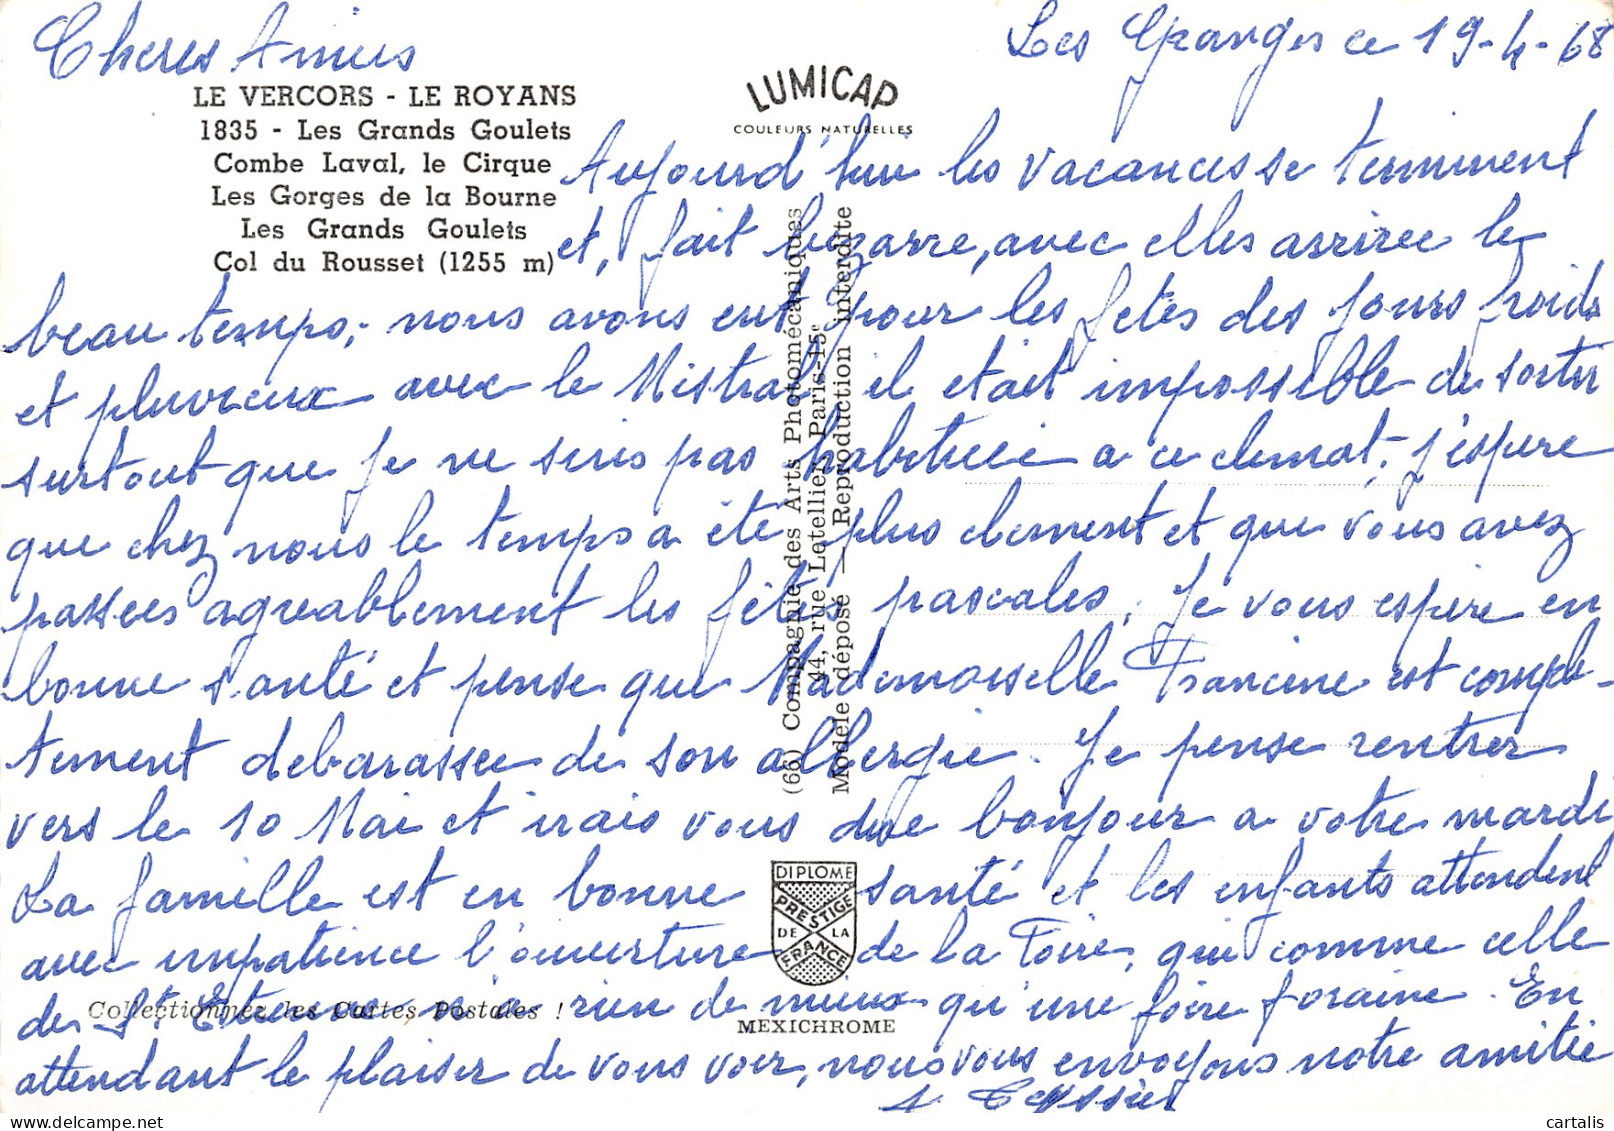 Cheres Amies
Les Granges ce 19-4-68
LE VERCORS - LE ROYANS
1835 - Les Grands Goulets
Combe Laval, le Cirque
Les Gorges de la Bourne
Les Grands Goulets
Col du Rousset (1255 m)
LUMICAP
COULEURS NATURELLES
Aujourd'hui les vacances se terminent
et, fait bizarre, avec elles arrivee le
beau temps; nous avons eut pour les fetes des jours froids
et pluvieux avec le Mistral il etait impossible de sortir
surtout que je ne suis pas habituée a ce climat; j'espere
que chez nous le temps a été plus clement et que vous avez
passees agreablement les fêtes pascales. Je vous espère en
bonne santé et pense que Mademoiselle Francine est comple-
tement debarassee de son allergie. Je pense rentrer
vers le 10 Mai et irais vous dire bonjour a votre mardi
La famille est en bonne santé et les enfants attendent
avec impatience l'ouverture de la Foire, qui comme celle
de St Etienne n'a rien de mieux qu'une foire foraine. En
attendant le plaisir de vous voir, nous vous envoyons notre amitié
A. Teyssier
(66) Compagnie des Arts Photomécaniques
44, rue Letellier, Paris-15e
Modèle déposé — Reproduction interdite
DIPLOME
PRESTIGE
DE LA
FRANCE
Collectionnez les Cartes Postales !
MEXICHROME
cartalis
www.delcampe.net